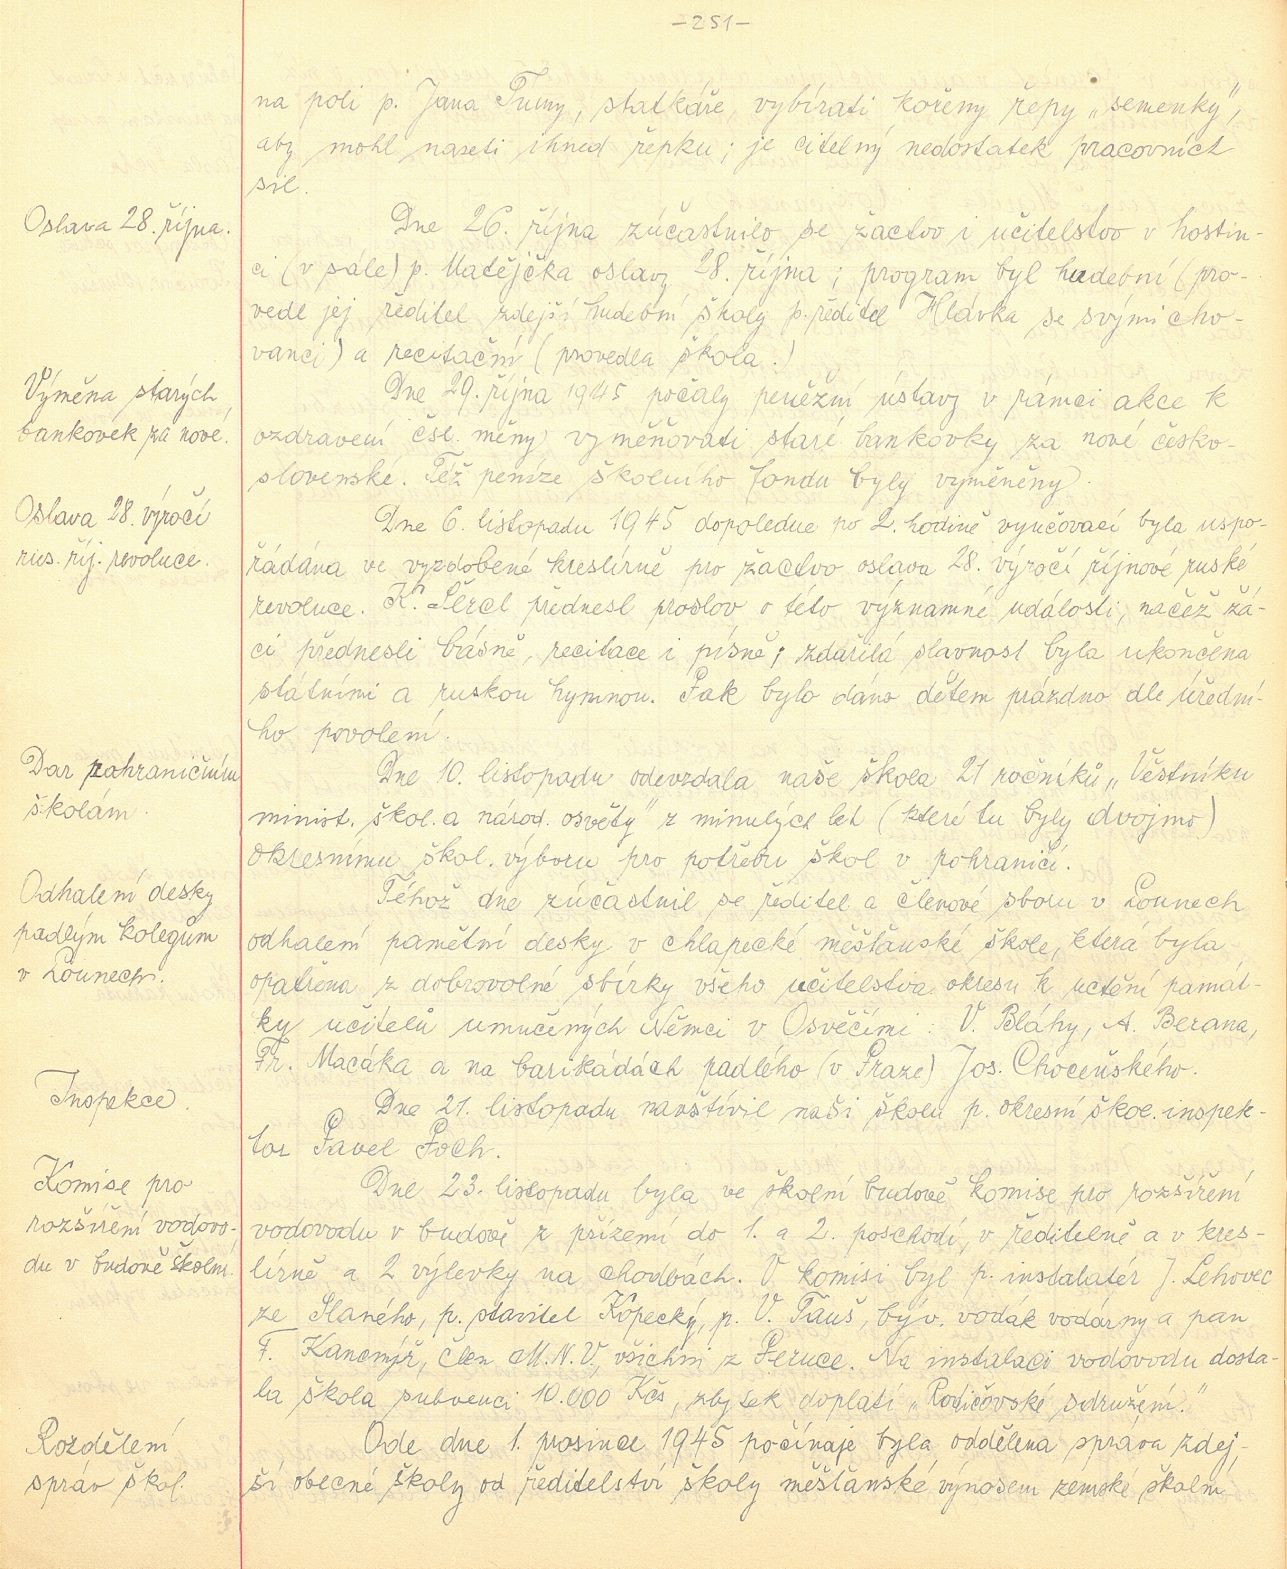 -251-
na poli p. Jana Tumy, statkáře, vybírati kořeny řepy „semenky",
aby mohl naseti ihned řepku; je citelný nedostatek pracovních
sil.
Oslava 28. října.
Dne 26. října zúčastnilo se žactvo i učitelstvo v hostin-
ci (v sále) p. Matějčka oslavy 28. října; program byl hudební (pro-
vedl jej ředitel zdejší hudební školy p. ředitel Hlávka se svými cho-
vanci) a recitační (provedla škola.)
Výměna starých
bankovek za nové.
Dne 29. října 1945 počaly peněžní ústavy v rámci akce k
ozdravení čsl. měny vyměňovati staré bankovky za nové česko-
slovenské. Též peníze školního fondu byly vyměněny.
Oslava 28. výročí
rus. říj. revoluce.
Dne 6. listopadu 1945 dopoledne po 2. hodině vyučovací byla uspo-
řádána ve vyzdobené kreslírně pro žactvo oslava 28. výročí říjnové ruské
revoluce. K. Šercl přednesl proslov o této významné události, načež žá-
ci přednesli básně, recitace i písně; zdařilá slavnost byla ukončena
státními a ruskou hymnou. Pak bylo dáno dětem prázdno dle úřední-
ho povolení.
Dar zahraničním
školám.
Dne 10. listopadu odevzdala naše škola 21 ročníků „Věstníku
minist. škol. a národ. osvěty" z minulých let (které tu byly dvojmo)
okresnímu škol. výboru pro potřebu škol v pohraničí.
Odhalení desky
padlým kolegům
v Lounech.
Téhož dne zúčastnil se ředitel a členové sboru v Lounech
odhalení pamětní desky v chlapecké měšťanské škole, která byla
opatřena z dobrovolné sbírky všeho učitelstva okresu k uctění památ-
ky učitelů umučených Němci v Osvěčími: V. Bláhy, A. Berana,
Fr. Macáka a na barikádách padlého (v Praze) Jos. Choceňského.
Inspekce.
Dne 21. listopadu navštívil naši školu p. okresní škol. inspek-
tor Pavel Foch.
Komise pro
rozšíření vodovo-
du v budově školní.
Dne 23. listopadu byla ve školní budově komise pro rozšíření
vodovodu v budově z přízemí do 1. a 2. poschodí, v ředitelně a v kres-
lírně a 2 výlevky na chodbách. V komisi byl p. instalatér J. Lehovec
ze Slaného, p. stavitel Kopecký, p. V. Tauš, býv. vodák vodárny a pan
F. Kancnýř, člen M.N.V., všichni z Peruce. Na instalaci vodovodu dosta-
la škola subvenci 10.000 Kčs, zbytek doplatí „Rodičovské sdružení."
Rozdělení
správ škol.
Ode dne 1. prosince 1945 počínaje byla oddělena správa zdej-
ší obecné školy od ředitelství školy měšťanské výnosem zemské školní